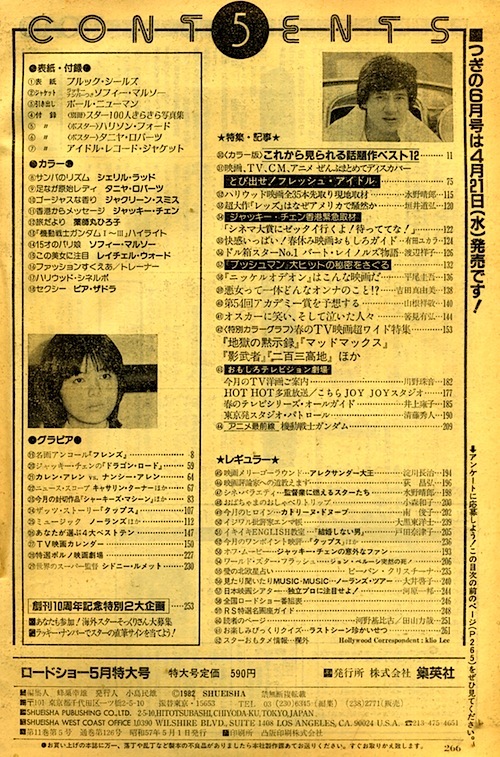 CONTENTS
5
●表紙・付録●
①表 紙 ブルック・シールズ
②ジャケット ソフィー・マルソー
③引き出し ポール・ニューマン
④付 録 〈別冊〉スター100人きらきら写真集
⑤ 〃 〈ポスター〉ハリソン・フォード
⑥ 〃 〈ポスター〉タニヤ・ロバーツ
⑦ 〃 アイドル・レコード・ジャケット
●カラー●
⑧サンバのリズム シェリル・ラッド
⑨足なが原始レディ タニヤ・ロバーツ
⑩ゴージャスな香り ジャクリーン・スミス
⑪香港からメッセージ ジャッキー・チェン
⑫旅だより 薬師丸ひろ子
⑬『機動戦士ガンダムI〜III』ハイライト
⑭15才のパリ娘 ソフィー・マルソー
⑮この美女に注目 レイチェル・ウォード
⑯ファッションすくえあ/トレーナー
⑰ハリウッド・シネルポ
⑱セクシー ピア・ザドラ
●グラビア●
⑲名画アンコール『フレンズ』 8
⑳ジャッキー・チェンの『ドラゴン・ロード』 59
カレン・アレン VS. ナンシー・アレン 64
ニュース・スコープ キャサリン・ターナーほか 67
今月の封切作品『シャーキーズ・マシーン』ほか 83
ザッツ・ストーリー『タップス』 107
ミュージック ノーランズほか 112
あなたが選ぶ4大ベストテン 147
TV映画カレンダー 150
特選ポルノ映画劇場 227
世界のスーパー監督 シドニー・ルメット 230
創刊10周年記念特別2大企画 253
あなたも参加!海外スターそっくりさん大募集
ラッキー・ナンバーでスターの直筆サインを当てよう!
★特集・記事★
〈カラー版〉これから見られる話題作ベスト12 11
映画、TV、CM、アニメ ぜんぶまとめてディスカバー
とび出せ!フレッシュ・アイドル 75
ハリウッド映画全35本先取り現地取材 水野晴郎・115
超大作『レッズ』はなぜアメリカで騒然か 垣井道弘・120
ジャッキー・チェン香港緊急取材
「シネマ大賞にゼッタイ行くよ!待っててな!」 122
快感いっぱい!春休み映画おもしろガイド 有田ユカラ・124
ドル箱スターNo.1 バート・レイノルズ物語 渡辺祥子・126
『ブッシュマン』大ヒットの秘密をさぐる 132
『ニッケルオデオン』はこんな映画だ 宇尾圭吾・136
悪女って一体どんなオンナのこと!? 吉田真由美・138
第54回アカデミー賞を予想する 山根祥敬・140
オスカーに笑い、そして泣いた人々 筈見有弘・144
〈特別カラーグラフ〉春のTV映画超ワイド特集 153
『地獄の黙示録』『マッドマックス』
『影武者』『二百三高地』 ほか
おもしろテレビジョン劇場
今月のTV洋画ご案内 川野珠音・182
HOT HOT多重放送/こちらJOY JOYスタジオ 177
春のテレビシリーズ・オールガイド 井上庸子・185
東京発スタジオ・パトロール 清藤秀人・190
アニメ最前線 機動戦士ガンダム 209
★レギュラー★
映画メリーゴーラウンド アレクサンダー大王 淀川長治・194
映画評論家への道教えます 荻 昌弘・196
シネ・バラエティ 監督業に燃えるスターたち 水野晴郎・198
おばちゃまのおしゃべりトランク 小森和子・200
今月のヒロイン カトリーヌ・ドヌーブ 南 俊子・202
イジワル批評家エンマ帳 大黒東洋士・239
イキイキENGLISH教室 「結婚しない男」 戸田奈津子・205
今月のワンポイント映評 『タップス』ほか 236
オフ・ムービー ジャッキー・チェンの意外なファン 193
ワールド・スター・フラッシュ ジョン・ベルーシ突然の死! 206
愛の北欧星占い ビーバン・クリスチーナ・235
見たり聞いたりMUSIC・MUSIC ノーランズ・ツアー 大井香子・240
日本映画シアター 独立プロに注目せよ! 河原一邦・244
全国ロードショー番組表 246
6月特選名画座ガイド 248
読者のページ 河野基比古/田山力哉・251
お楽しみびっくりクイズ ラストシーン珍かいせつ 261
スターおもてメ情報 欄外 Hollywood Correspondent : klio Lee
つぎの6月号は4月21日(水)発売です!
↓アンケートに応募しよう!この目次の前のページ(P265)をぜひ見てください。
ロードショー5月特大号 特大号定価 590円 発行所 株式会社 集英社
編集人 蜂巣幸雄 発行人 小島民雄 ©1982 SHUEISHA 禁無断複製載
〒101 東京都千代田区一ツ橋2-5-10 振替東京・15653 TEL 03(230)6345(編集) (238)2771(販売)
SHUEISHA PUBLISHING CO., LTD. 2-5-10,HITOTSUBASHI,CHIYODA-KU,TOKYO,JAPAN.
SHUEISHA WEST COAST OFFICE 10390 WILSHIRE BLVD., SUITE 1408 LOS ANGELES, CA. 90024 U.S.A. ☎213-475-4651
第11巻第5号 通巻第126号 昭和57年5月1日発行 印刷所 凸版印刷株式会社
●お買い上げの本誌に万一、落丁や乱丁など製本の不良品がありましたら本社製作課あてお送りください。すぐお取りかえ致します。
266